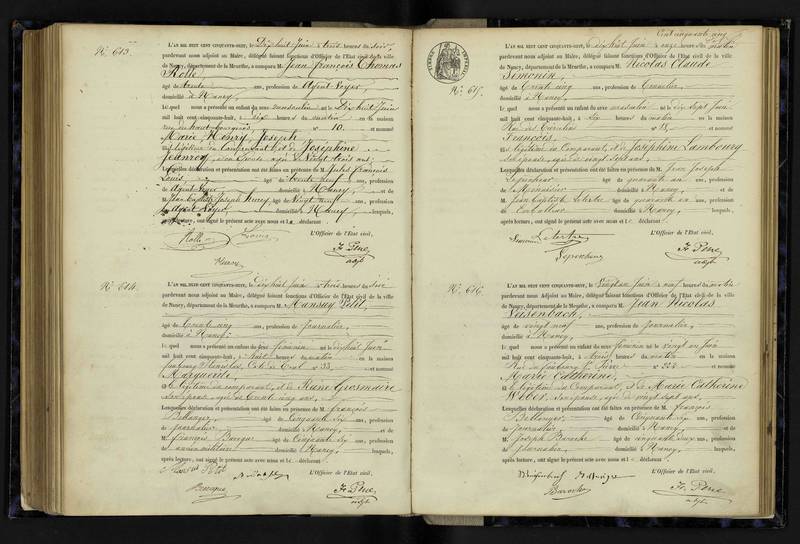 N° 613.
L'AN MIL HUIT CENT CINQUANTE-HUIT, le Dix huit Juin à trois heures du soir,
pardevant nous adjoint au Maire, délégué faisant fonctions d'Officier de l'Etat civil de la ville
de Nancy, département de la Meurthe, a comparu M. Jean François Thomas
Rollé,
âgé de trente ans, profession de Agent Voyer,
domicilié à Nancy,
lequel nous a présenté un enfant du sexe masculin né le Dix huit Juin
mil huit cent cinquante-huit, à dix heures du matin en la maison
n° 10. et nommé
Marie Henry Joseph
fils légitime du Comparant, et de Joséphine
Jeanroy, son Epouse âgée de Vingt trois ans,
Lesquelles déclaration et présentation ont été faites en présence de M. Jules François
Louis, âgé de trente neuf ans, profession
de Agent Voyer, domicilié à Nancy, et de
M. Jean Baptiste Joseph Henry, âgé de Vingt neuf ans, profession
de Agent Voyer domicilié à Nancy, lesquels,
après lecture, ont signé le présent acte avec nous et le déclarant
Rollé Louis L'Officier de l'Etat civil,
Henry
adjt
N° 614.
L'AN MIL HUIT CENT CINQUANTE-HUIT, le Dix huit Juin à trois heures du soir
pardevant nous adjoint au Maire, délégué faisant fonctions d'Officier de l'Etat civil de la ville
de Nancy, département de la Meurthe, a comparu M. Mansuy Petit,
âgé de Trente cinq ans, profession de Journalier,
domicilié à Nancy,
lequel nous a présenté un enfant du sexe féminin né le dix huit Juin
mil huit cent cinquante-huit, à huit heures du matin en la maison
faubourg Stanislas, n° 33, et nommé
Marguerite,
fille légitime du comparant, et de Reine Grosmaire
son épouse âgée de trente cinq ans,
Lesquelles déclaration et présentation ont été faites en présence de M. François
Bellanger, âgé de Cinquante six ans, profession
de Journalier, domicilié à Nancy, et de
M. François Bacque âgé de Cinquante six ans, profession
de ancien militaire domicilié à Nancy, lesquels,
après lecture, ont signé le présent acte avec nous et le déclarant
Mansui Petit L'Officier de l'Etat civil,
Bacque
adjt
Cent cinquante cinq
N° 615.
L'AN MIL HUIT CENT CINQUANTE-HUIT, le dix huit Juin à onze heures du matin
pardevant nous adjoint au Maire, délégué faisant fonctions d'Officier de l'Etat civil de la ville
de Nancy, département de la Meurthe, a comparu M. Nicolas Claude
Simonin,
âgé de Trente cinq ans, profession de
domicilié à Nancy,
lequel nous a présenté un enfant du sexe masculin né le dix sept Juin
mil huit cent cinquante-huit, à six heures du matin en la maison
Rue des n° 11, et nommé
François,
fils légitime du Comparant, et de Joséphine Lambourg
son épouse âgée de vingt sept ans,
Lesquelles déclaration et présentation ont été faites en présence de M. Jean Joseph
âgé de quarante un ans, profession
de Menuisier domicilié à Nancy, et de
M. Jean Baptiste Letertre âgé de quarante un ans, profession
de domicilié à Nancy, lesquels,
après lecture, ont signé le présent acte avec nous et le déclarant
Simonin Letertre L'Officier de l'Etat civil,
adjt
N° 616.
L'AN MIL HUIT CENT CINQUANTE-HUIT, le Vingt un Juin à neuf heures du matin
pardevant nous Adjoint au Maire, délégué faisant fonctions d'Officier de l'Etat civil de la ville
de Nancy, département de la Meurthe, a comparu M. Jean Nicolas
âgé de vingt neuf ans, profession de Journalier,
domicilié à Nancy,
lequel nous a présenté un enfant du sexe féminin né le vingt un Juin
mil huit cent cinquante-huit, à trois heures du matin en la maison
Rue du faubourg St Pierre n° 224 et nommé
Marie Catherine,
fille légitime du Comparant, et de Marie Catherine
Weber, son épouse âgée de vingt sept ans,
Lesquelles déclaration et présentation ont été faites en présence de M. François
Bellanger, âgé de Cinquante six ans, profession
de Journalier, domicilié à Nancy, et de
M. Joseph Baroche âgé de cinquante deux ans, profession
de Journalier, domicilié à Nancy, lesquels,
après lecture, ont signé le présent acte avec nous et le déclarant
L'Officier de l'Etat civil,
Baroche
adjt